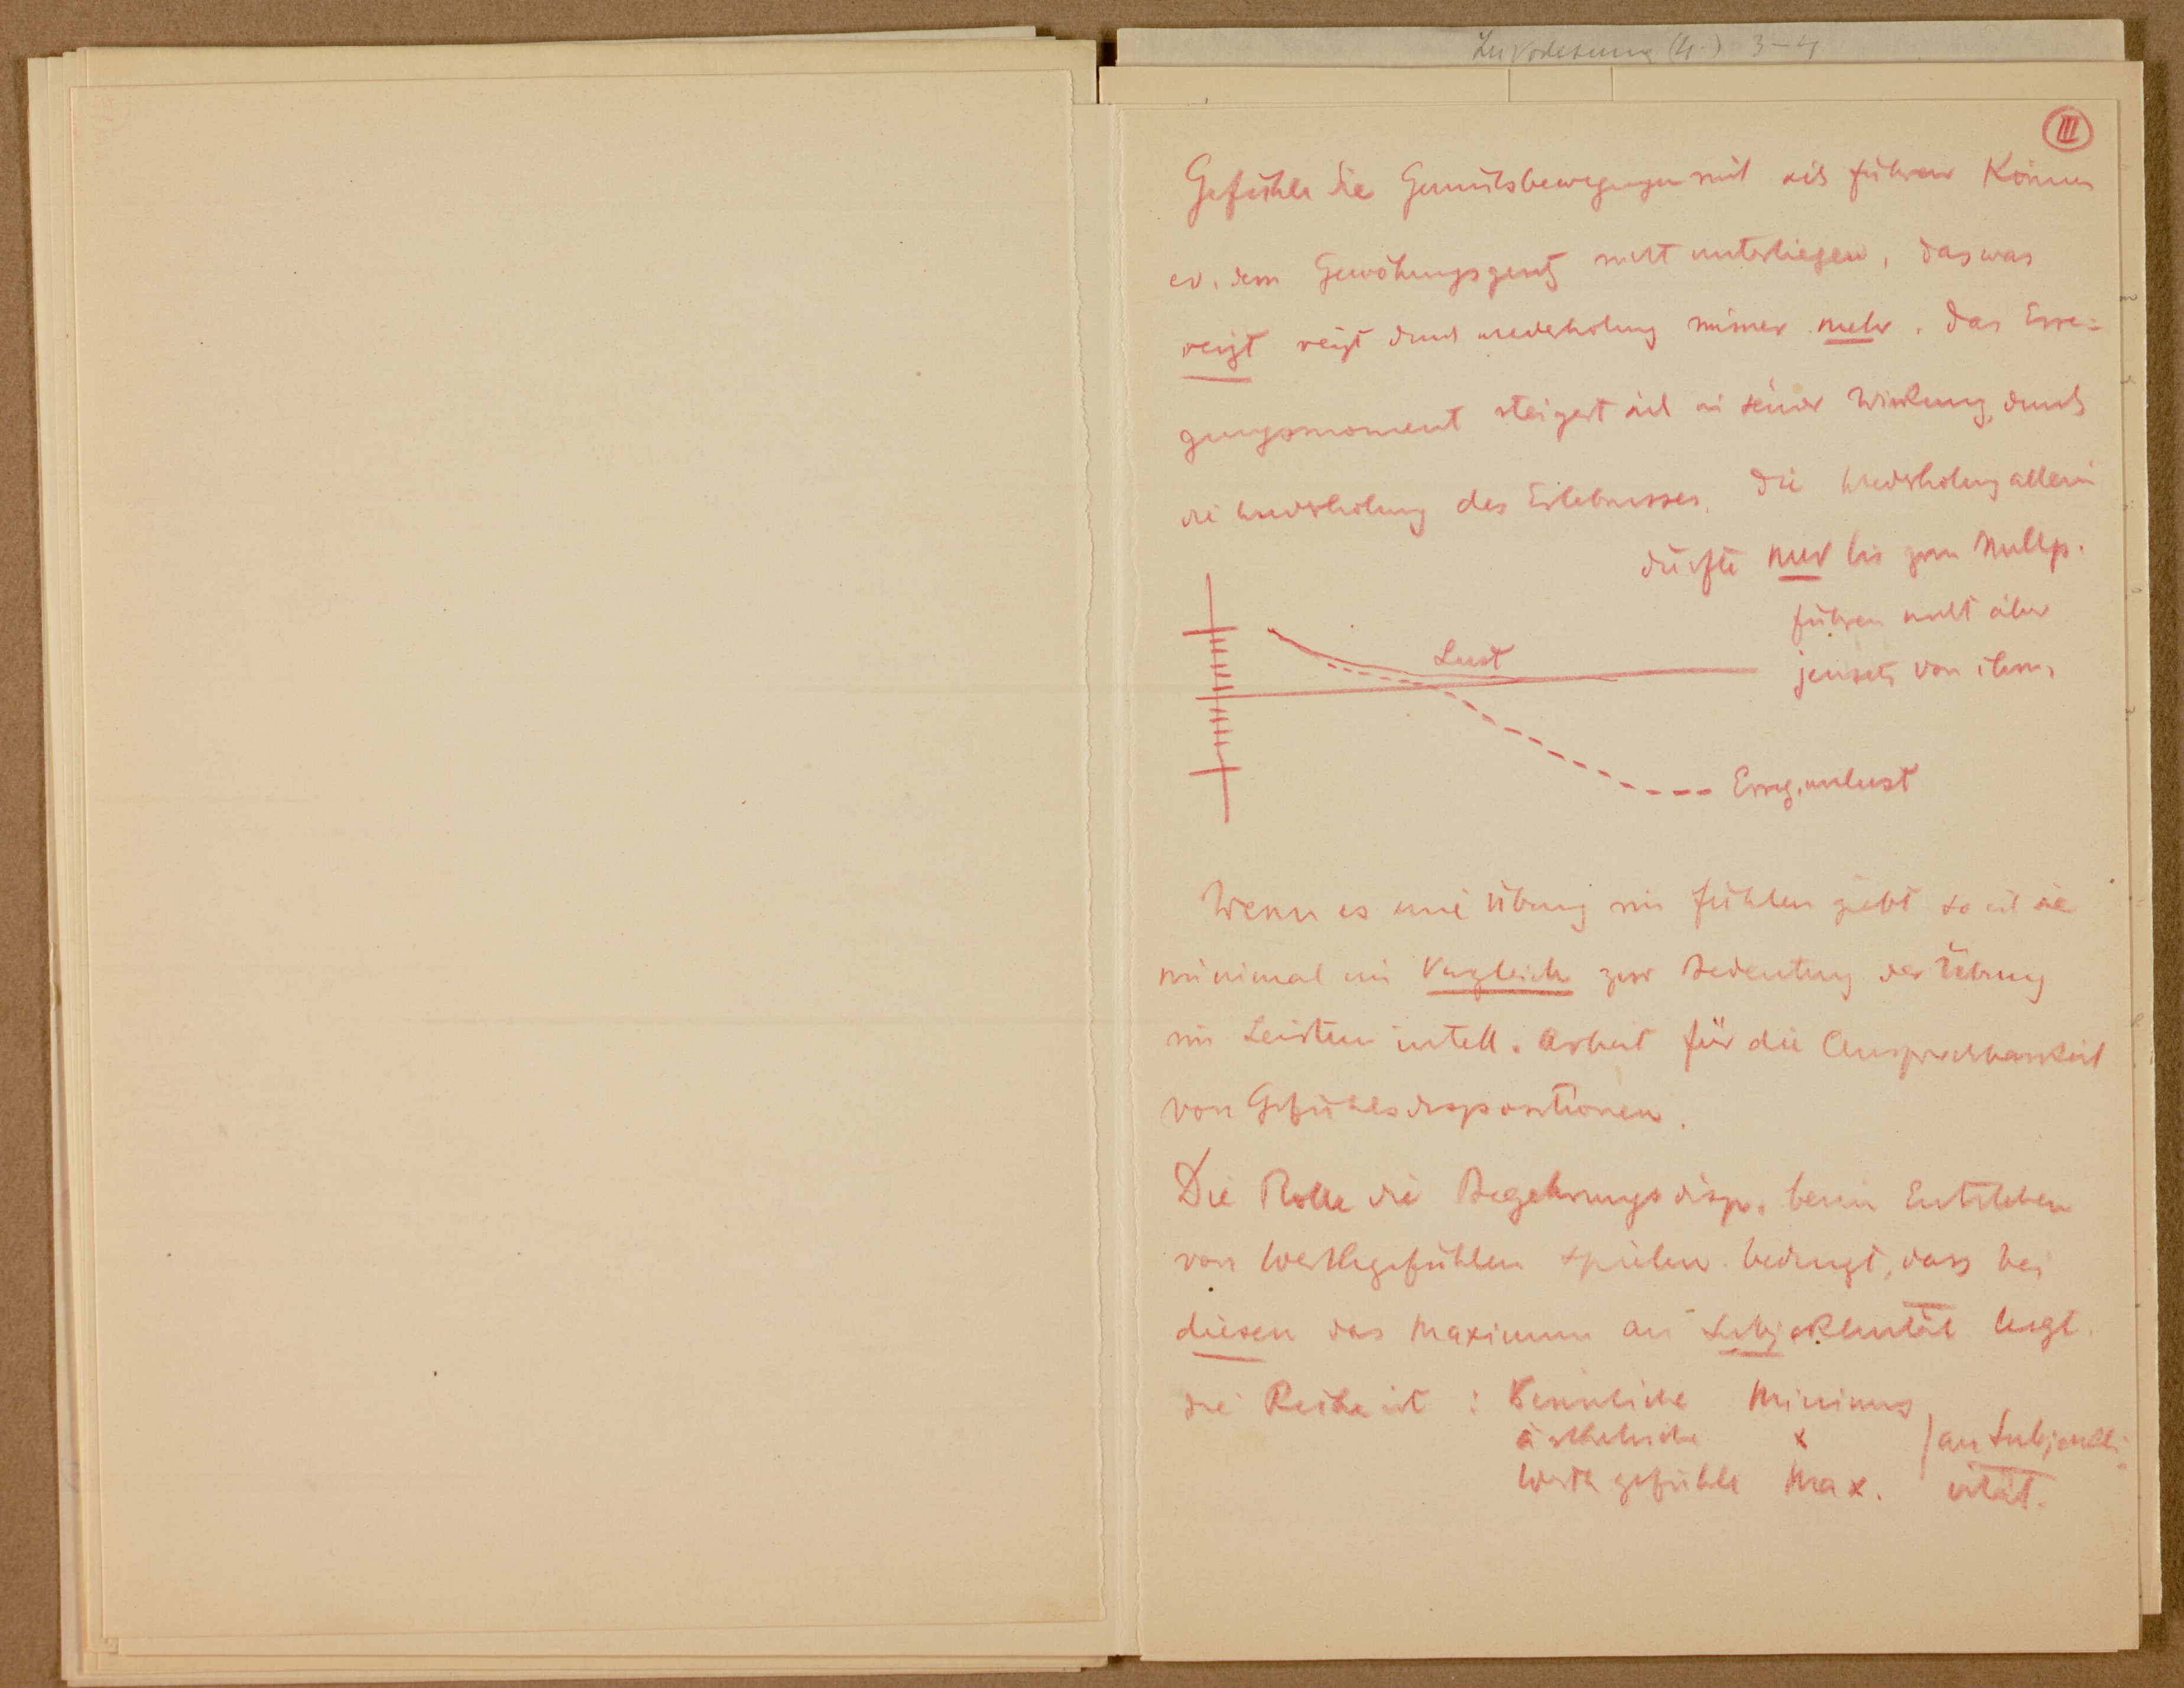 Zur Vorlesung (4.) 3–4
III
Gefühle die Gemütsbewegungen mit sich führen können
ev. dem Gewöhnungsgesetz nicht unterliegen, das was
reizt reizt durch Wiederholung immer mehr. Das Erre-
gungsmoment steigert sich in seiner Wirkung durch
die Wiederholung des Erlebnisses. Die Wiederholung allein
dürfte nur bis zum Nullp.
führen nicht aber
jenseits von ihm.
Lust
Erreg.unlust
Wenn es eine Übung im Fühlen giebt so ist sie
minimal im Vergleich zur Bedeutung der Übung
im Leisten intell. Arbeit für die Ansprechbarkeit
von Gefühlsdispositionen.
Die Rolle die Begehrungsdisp. beim Entstehen
von Werthgefühlen spielen bedingt, dass bei
diesen das Maximum an Subjektivität liegt.
die Reihe ist : Sinnliche Minimum
ästhetische x an Subjekti-
Werthgefühle Max. vität.